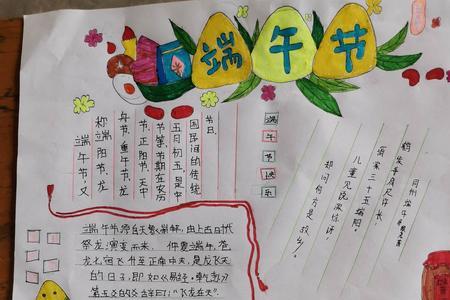 端午节
端午节又
称端阳节、龙
午节、重午节、龙
节、正阳节、天中
节等节期在农历
五月初五是中
国民间的传统
节日
端
午
节
快
乐
同州端午
鹤发垂肩尺许长,
离家三十五端阳。
儿童见说深惊讶,
却问何方是故乡。
端午节源自天象崇拜,由上古时代
祭龙演变而来。仲夏端午,苍
龙七宿飞升至正南中天,是反飞天
的日子,即如《易经·乾卦》
第五爻的爻辞曰:“飞龙在天”。